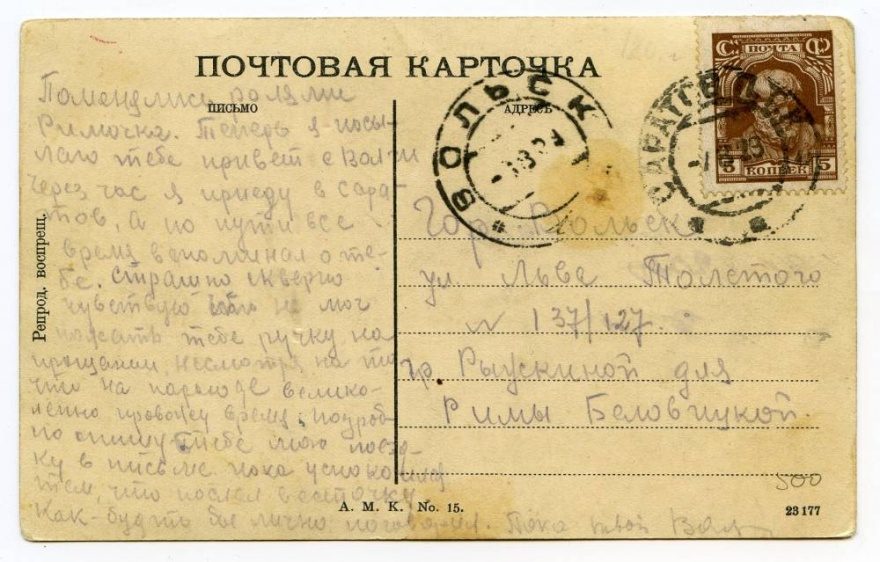 ПОЧТОВАЯ КАРТОЧКА
ПИСЬМО
АДРЕСЪ
ПОЧТА
5 КОПЕЕК 5
ВОЛЬСК
САРАТОВ
Репрод. воспрещ.
Римочка. Теперь я посы-
лаю тебе привет с Волги
Через час я приеду в Сара-
тов, а по пути все
время вспоминал о те-
бе. Страшно скверно
чувствую что не мог
пожать тебе ручку на
прощании, несмотря на то
что на пароходе велико-
лепно провожу время, подроб-
но опишу тебе мою поезд-
ку в письме пока успокоились
тем, что послал весточку
как-будто бы лично поговорил. Пока твой
Гор. Вольск
ул. Льва Толстого
№ 137/127.
гр. Рыускиной для
Римы Беловицкой.
500
А. М. К. No. 15.
23177